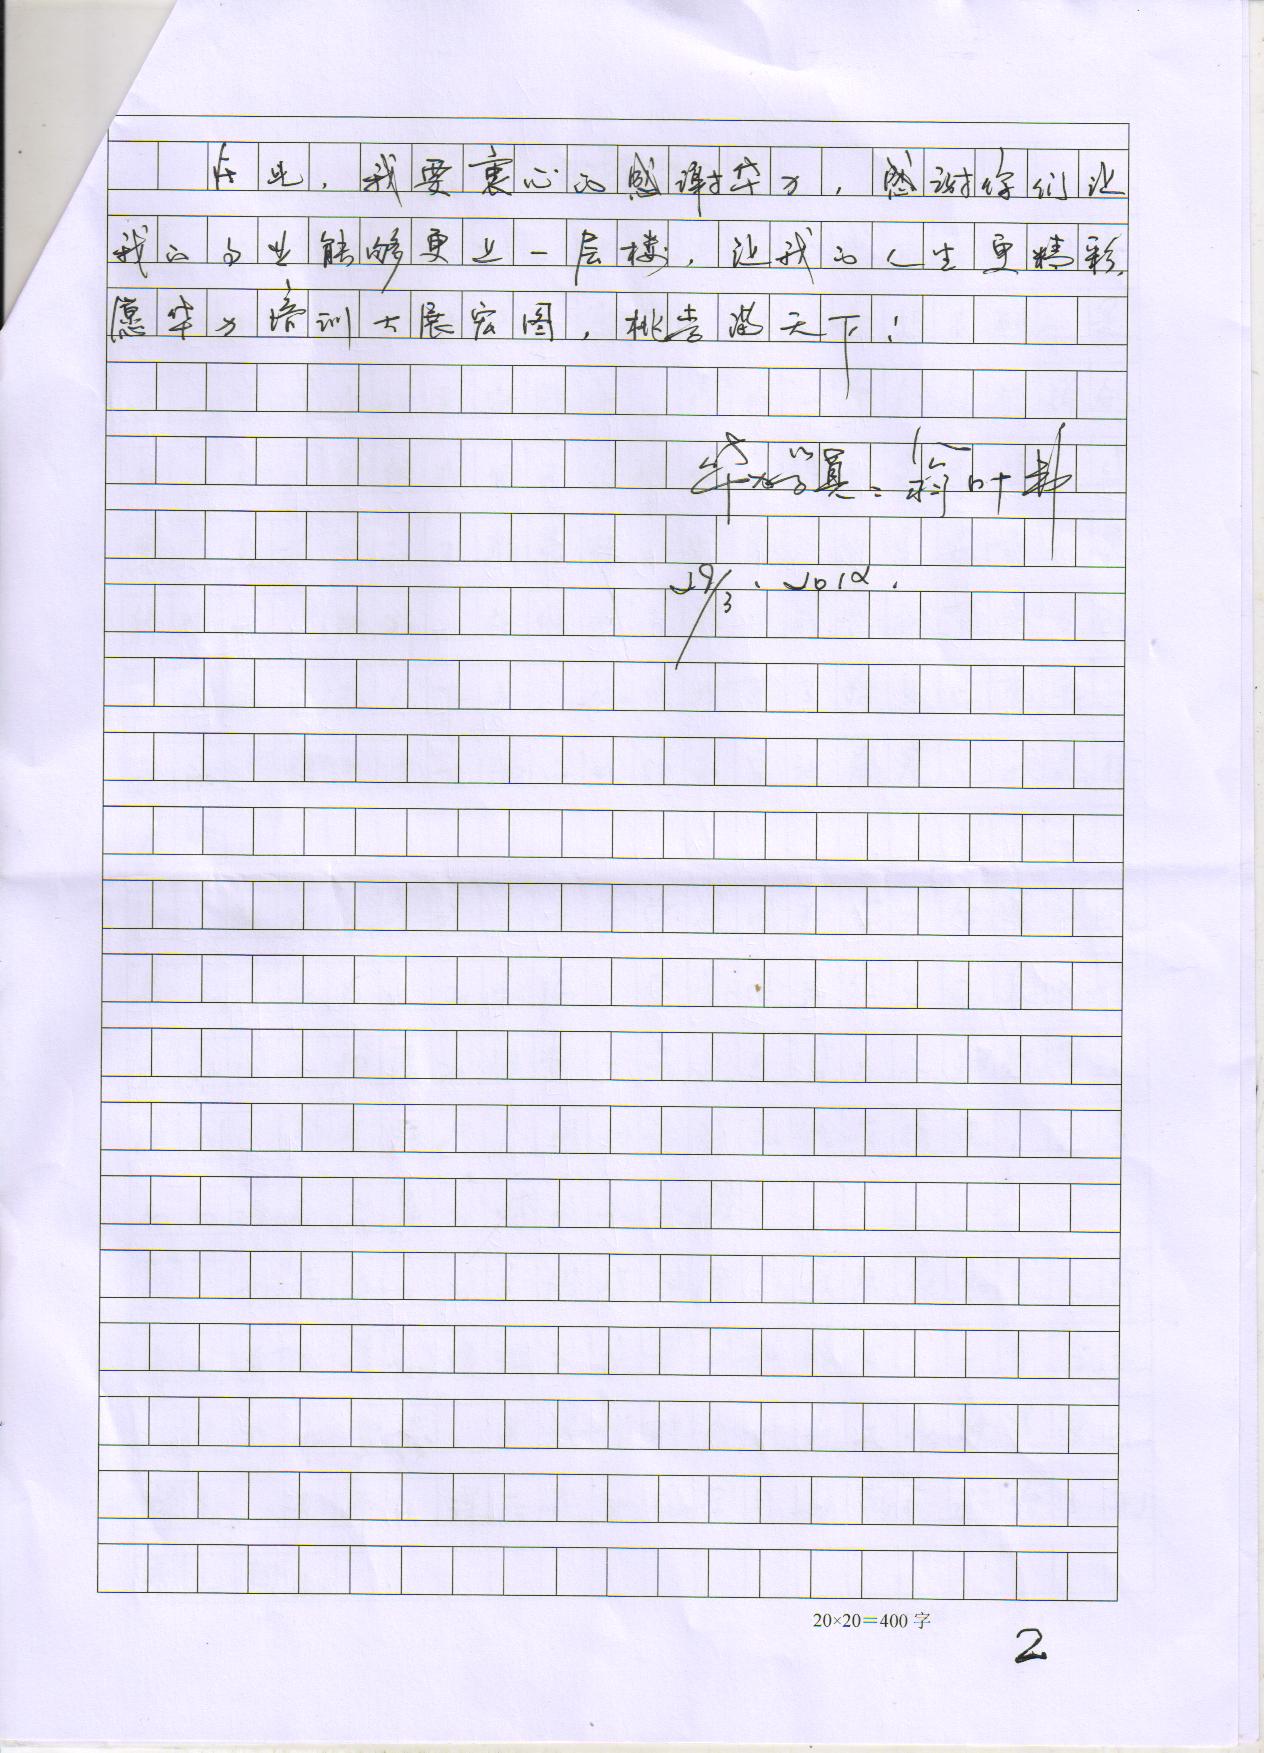 在此，我要衷心的感谢华为，感谢你们让
我的专业能够更上一层楼，让我的人生更精彩．
愿华为培训大展宏图，桃李满天下！
华为学员：
29/3．2012．
20×20=400 字
2